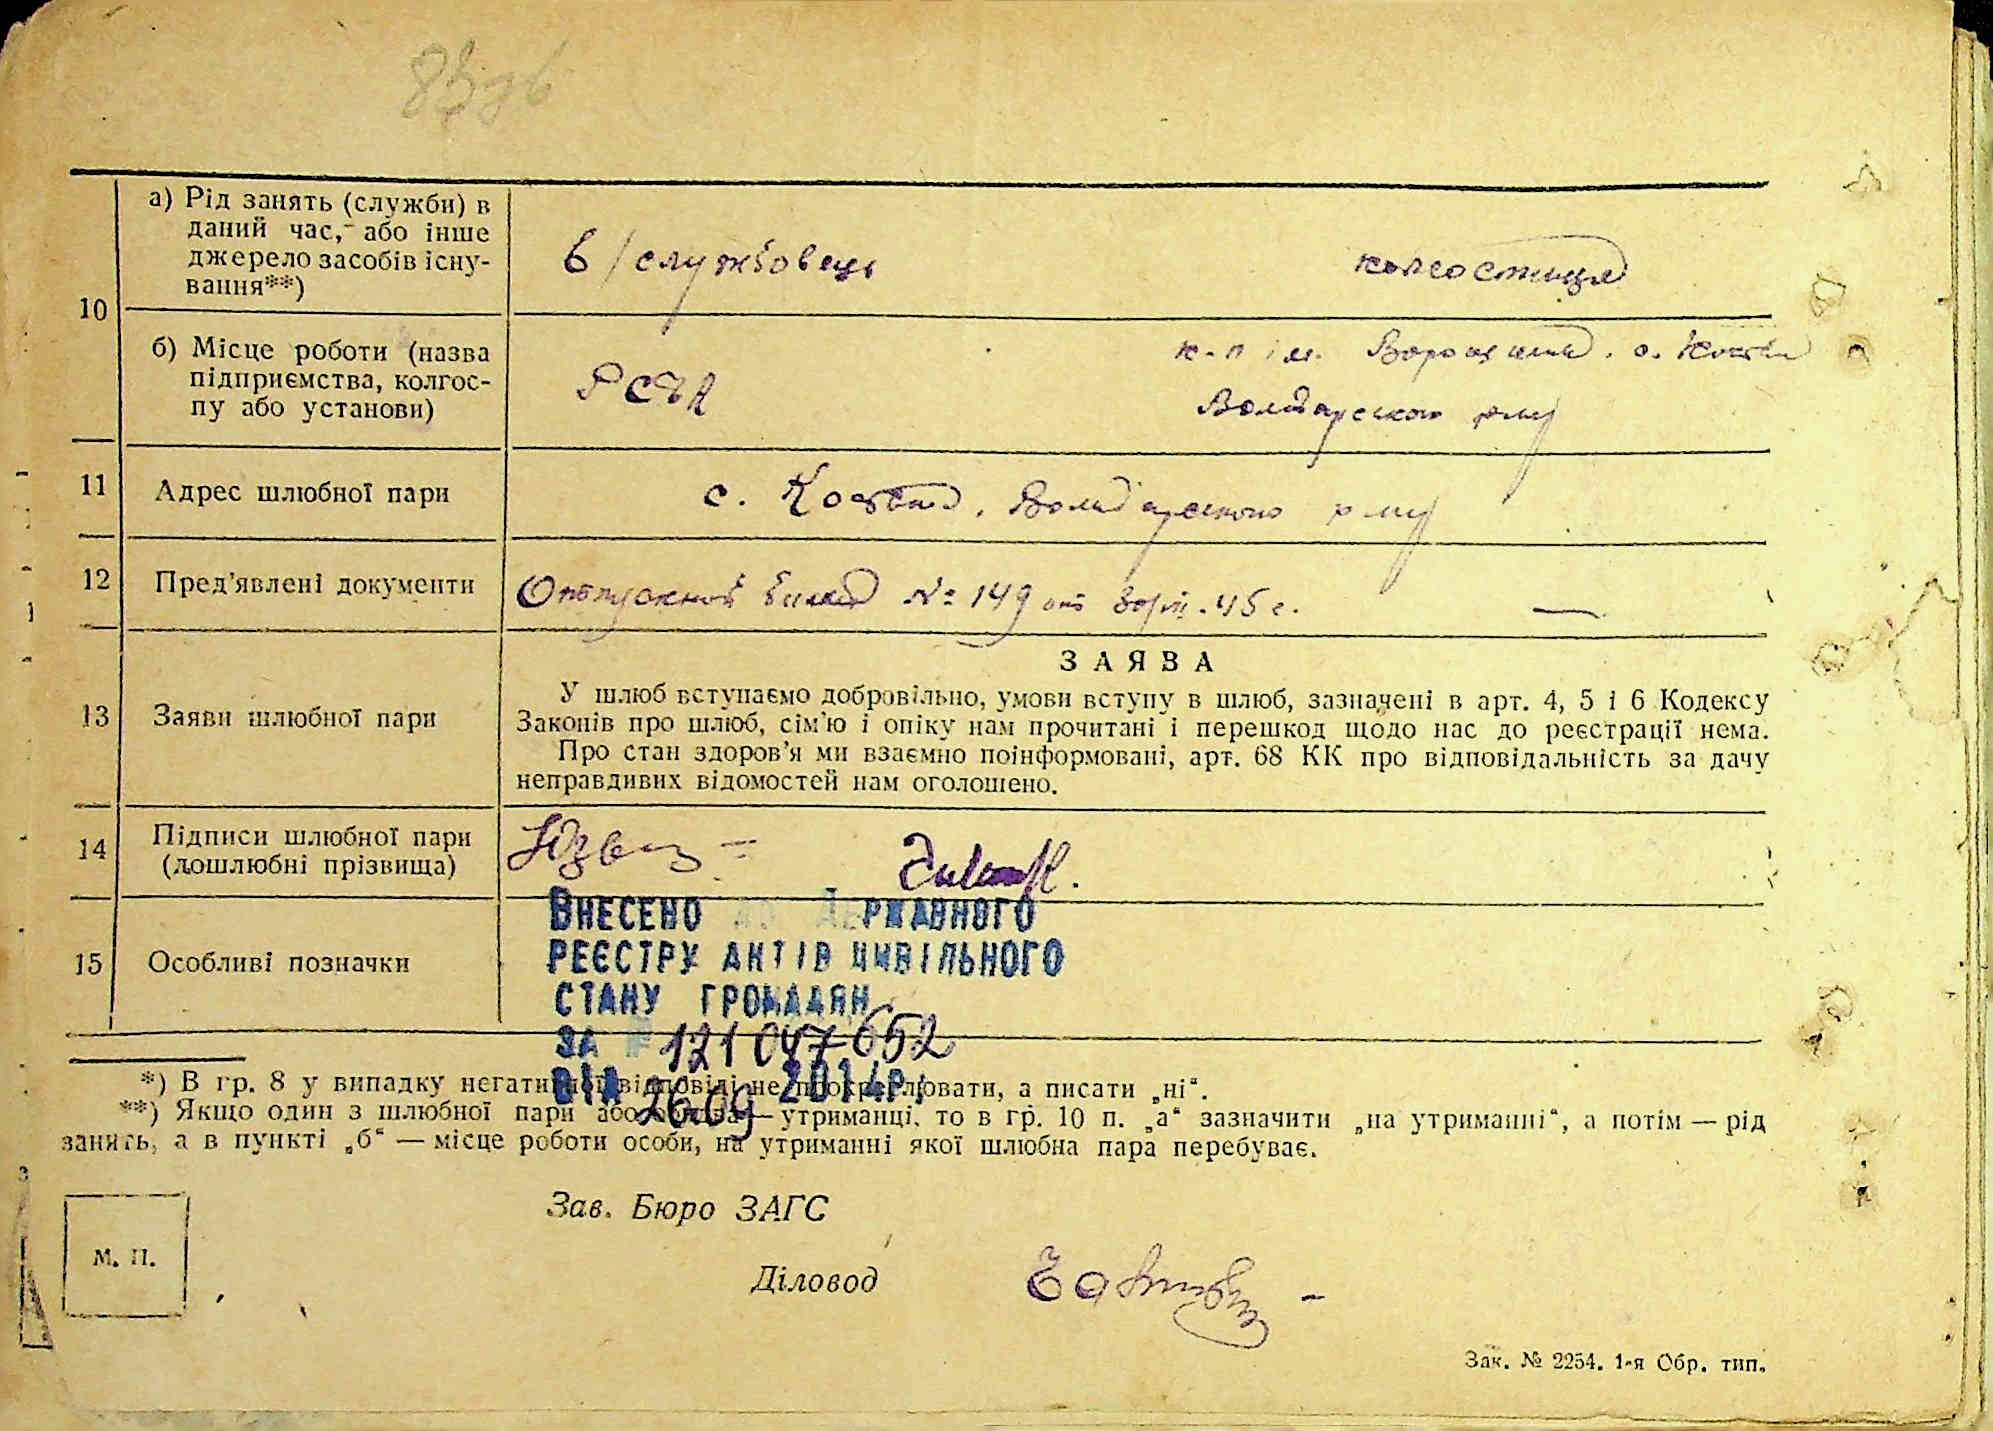 83зв
а) Рід занять (служби) в
даний час, або інше
джерело засобів існу-
вання**)
в/службовець
колгостниця
10
б) Місце роботи (назва
підприємства, колгос-
пу або установи)
РСЧА
к-п ім. Ворошилова, с.
Володарського р-ну
11
Адрес шлюбної пари
с. Володарського р-ну
12
Пред'явлені документи
Отпускной билет № 149 от 45 г. —
13
Заяви шлюбної пари
ЗАЯВА
У шлюб вступаємо добровільно, умови вступу в шлюб, зазначені в арт. 4, 5 і 6 Кодексу
Законів про шлюб, сім'ю і опіку нам прочитані і перешкод щодо нас до реєстрації нема.
Про стан здоров'я ми взаємно поінформовані, арт. 68 КК про відповідальність за дачу
неправдивих відомостей нам оголошено.
14
Підписи шлюбної пари
(дошлюбні прізвища)
15
Особливі позначки
ВНЕСЕНО ДО ДЕРЖАВНОГО
РЕЄСТРУ АКТІВ ЦИВІЛЬНОГО
СТАНУ ГРОМАДЯН
ЗА № 121047652
ВІД 26.09 2014р.
*) В гр. 8 у випадку негативної відповіді не прокреслювати, а писати „ні“.
**) Якщо один з шлюбної пари або — утриманці, то в гр. 10 п. „а“ зазначити „на утриманні“, а потім — рід
занять, а в пункті „б“ — місце роботи особи, на утриманні якої шлюбна пара перебуває.
Зав. Бюро ЗАГС
М. П.
Діловод
Зак. № 2254. 1-я Обр. тип.